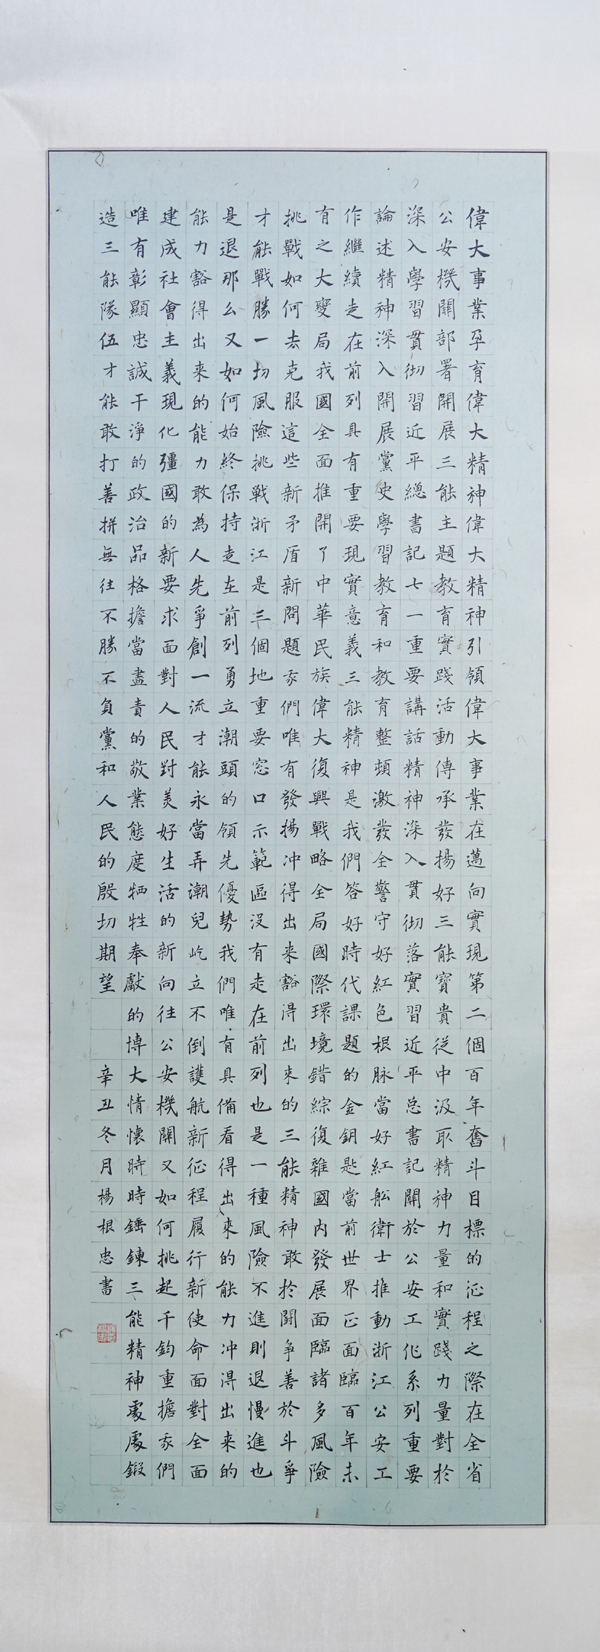 偉大事業孕育偉大精神偉大精神引領偉大事業在邁向實現第二個百年奮斗目標的征程之際在全省
公安機關部署開展三能主題教育實踐活動傳承發揚好三能寶貴從中汲取精神力量和實踐力量對於
深入學習貫彻習近平總書記七一重要講話精神深入貫彻落實習近平总書記關於公安工作系列重要
論述精神深入開展黨史學習教育和教育整頓激發全警守好紅色根脉當好紅船衛士推動浙江公安工
作繼續走在前列具有重要現實意義三能精神是我們答好時代課題的金鑰匙當前世界正面臨百年未
有之大變局我國全面推開了中華民族偉大復興戰略全局國際環境錯綜復雜國内發展面臨諸多風險
挑戰如何去克服這些新矛盾新問題我們唯有發揚冲得出來豁得出来的三能精神敢於鬪争善於斗爭
才能戰勝一切風險挑戰浙江是三個地重要窓口示範區没有走在前列也是一種風險不進則退慢進也
是退那么又如何始終保持走在前列勇立潮頭的領先優勢我們唯有具備看得出來的能力冲得出来的
能力豁得出来的能力敢為人先爭創一流才能永當弄潮兒屹立不倒護航新征程履行新使命面對全面
建成社會主義現化彊國的新要求面對人民對美好生活的新向往公安機關又如何挑起千鈞重擔我們
唯有彰顯忠誠干净的政治品格擔當盡責的敬業態度牺牲奉獻的博大情懷時時錘鍊三能精神處處鍛
造三能隊伍才能敢打善拼無往不勝不負黨和人民的殷切期望
辛丑冬月楊根忠書